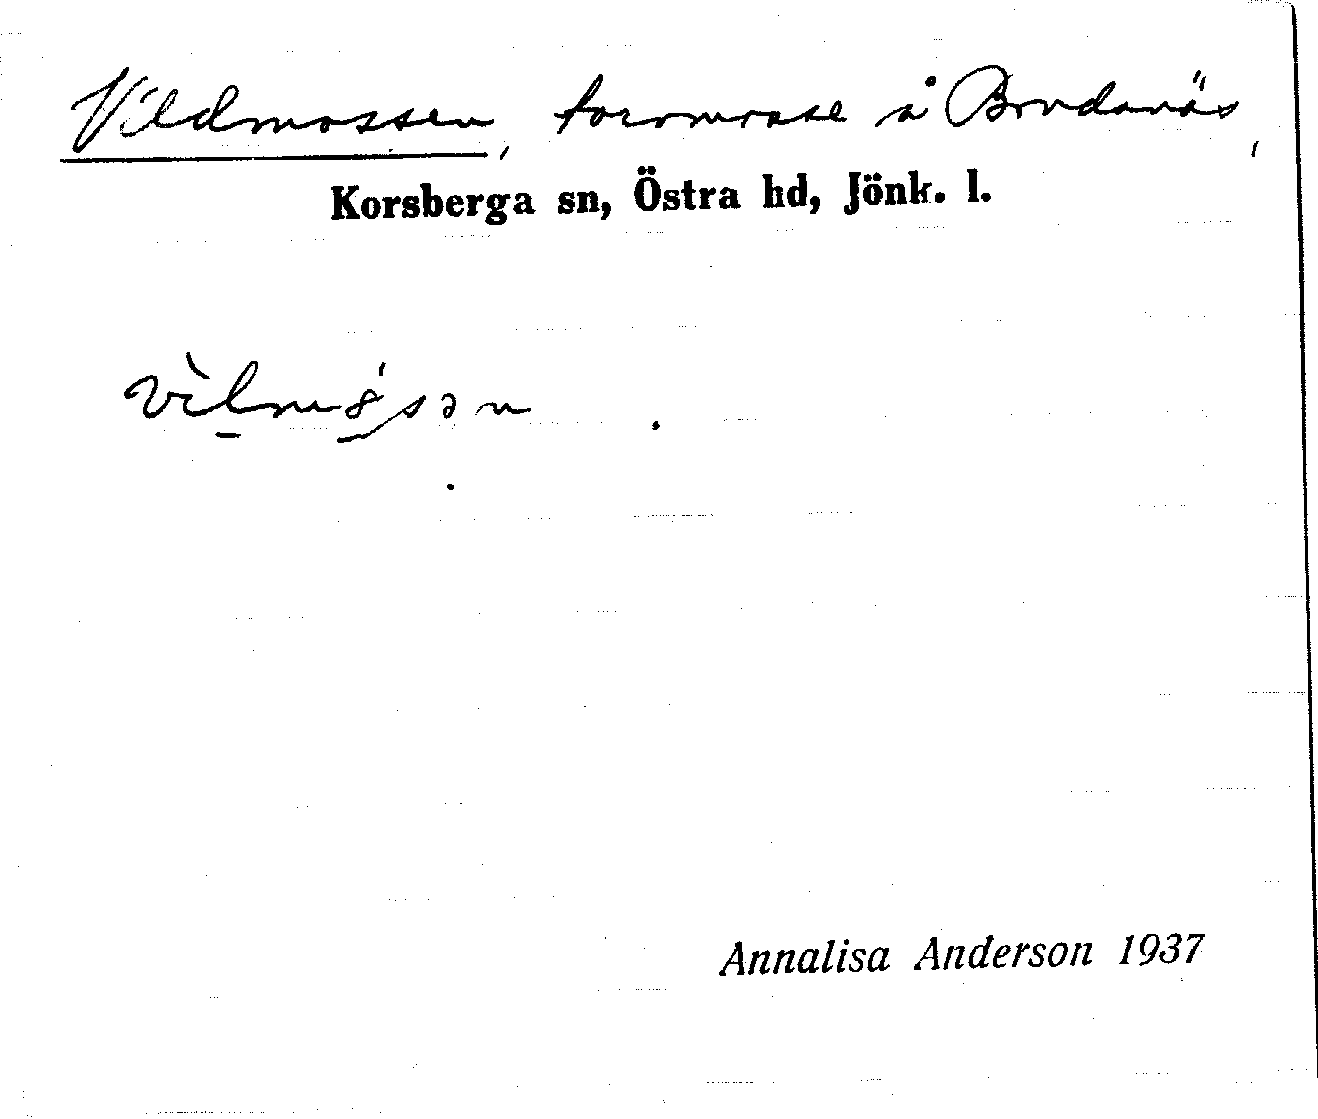 Vildmossen, torvmosse å Brudanäs,
Korsberga sn, Östra hd, Jönk. l.
Annalisa Anderson 1937